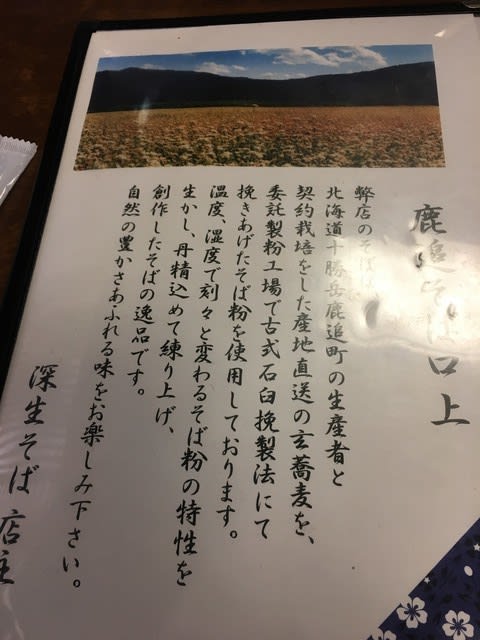 鹿追そば口上
弊店のそばは
北海道十勝岳鹿追町の生産者と
契約栽培をした産地直送の玄蕎麦を、
委託製粉工場で古式石臼挽製法にて
挽きあげたそば粉を使用しております。
温度、湿度で刻々と変わるそば粉の特性を
生かし、丹精込めて練り上げ、
創作したそばの逸品です。
自然の豊かさあふれる味をお楽しみ下さい。
深生そば 店主